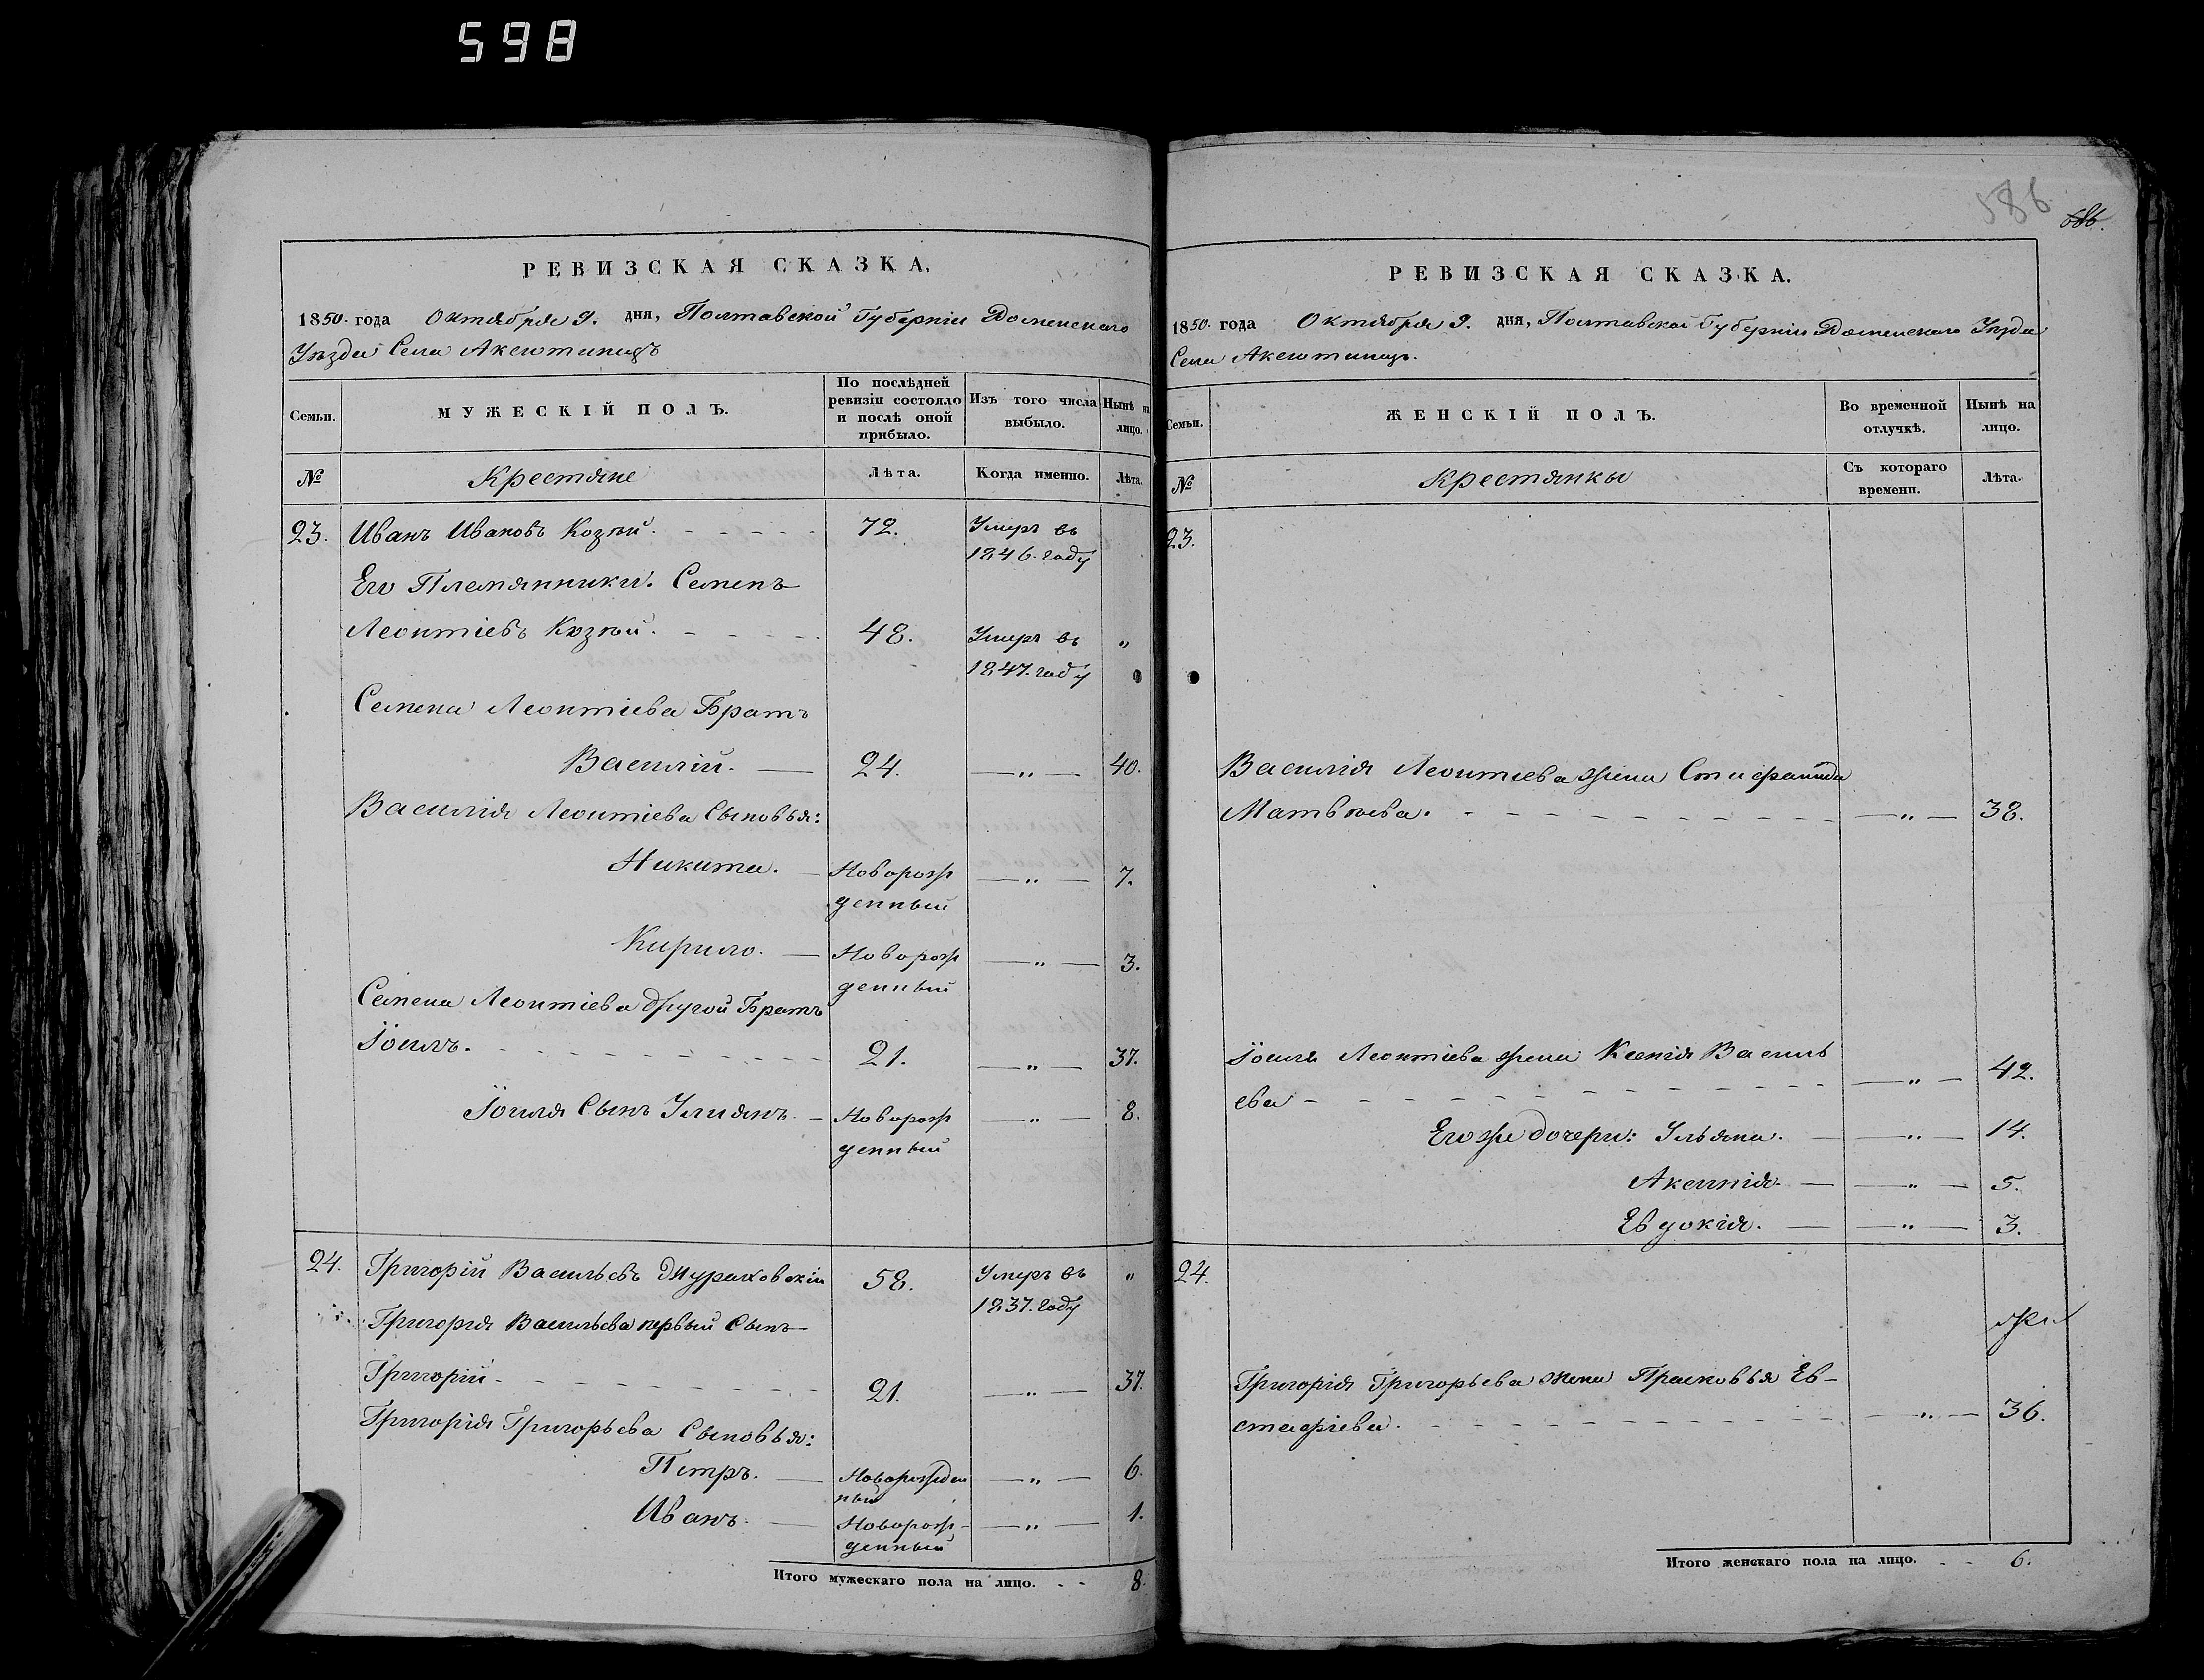 598
РЕВИЗСКАЯ СКАЗКА.
1850. года Октября 9. дня, Полтавской Губерніи Роменскаго
Уѣзда Села Аксютинцъ
Семьи.
МУЖЕСКІЙ ПОЛЪ.
По послѣдней ревизіи состояло и послѣ оной прибыло.
Изъ того числа выбыло.
Нынѣ на лицо.
№ Крестяне Лѣта. Когда именно. Лѣта.
23. Иванъ Ивановъ Козѣй. 72. Умеръ въ
1846. году
Его Племянники. Семенъ
Леонтіевъ Козѣй. 48. Умеръ въ „
1847. году
Семена Леонтіева Братъ
Василій. — 24. — „ — 40.
Василія Леонтіева Сыновья:
Никита. —Новорож — „ — 7.
денный
Кирило. — Новорож — „ — 3.
денный
Семена Леонтіева другой Братъ
Іоилъ. 21. — „ — 37.
Іоиля Сынъ Улиянъ. — Новорож — „ — 8.
денный
24. Григорій Васильевъ 58. Умеръ въ „
1837. году
Григорія Васильева первый Сынъ
Григорій 21. — „ — 37.
Григорія Григорьева Сыновья:
Петръ. — Новорожден — „ — 6.
ный
Иванъ. — Новорож- — „ — 1.
денный
Итого мужескаго пола на лицо. 8.
586
586.
РЕВИЗСКАЯ СКАЗКА.
1850. года Октября 9. дня, Полтавской Губерніи Роменскаго Уѣзда
Села Аксютинцъ.
Семьи.
ЖЕНСКІЙ ПОЛЪ.
Во временной отлучкѣ.
Нынѣ на лицо.
№ Крестянкы Съ котораго времени. Лѣта.
23.
Василія Леонтіева жена
Матвѣева. — „ — 38.
Іоиля Леонтіева жена Ксенія Василь
ева — „ — 42.
Егоже дочери: Ульяна. — „ — 14.
Аксинія — — „ — 5.
Евдокія. — — „ — 3.
24.
Григорія Григорьева жена Прасковья Ев-
стафіева. — „ — 36.
Итого женскаго пола на лицо. 6.